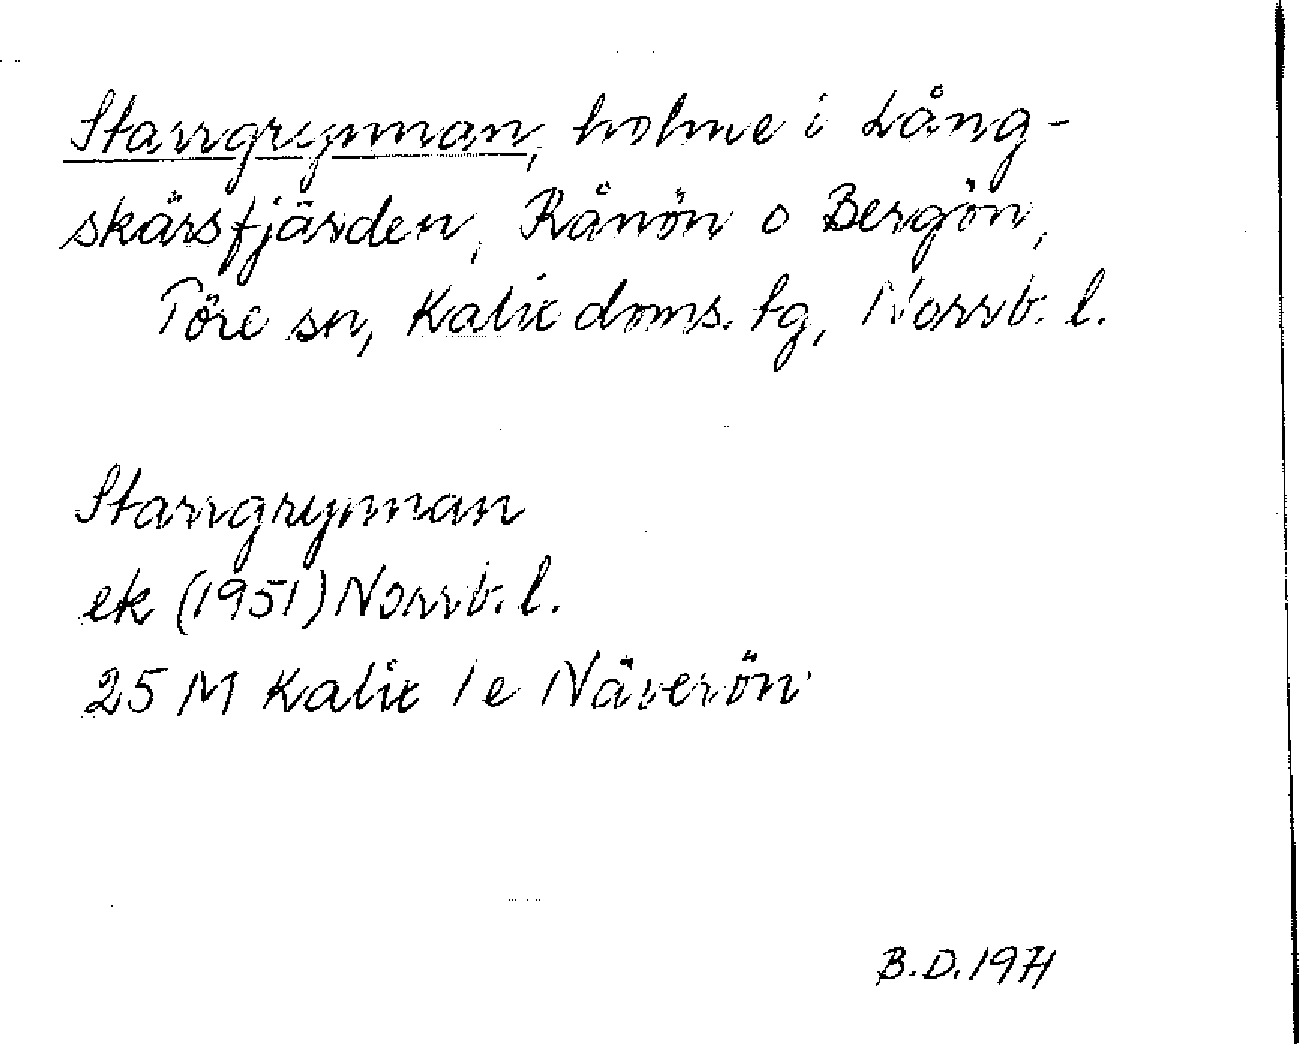 Starrgrynnan, holme i Lång-
skärsfjärden, Rånön o Bergön,
Töre sn, Kalix doms. tg, Norrb. l.
Starrgrynnan
ek (1951) Norrb. l.
25 M Kalix 1e Näverön
B.D. 1971